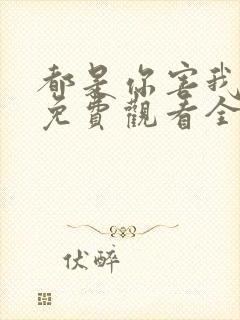 都是你害我
免費觀看全
伏醉